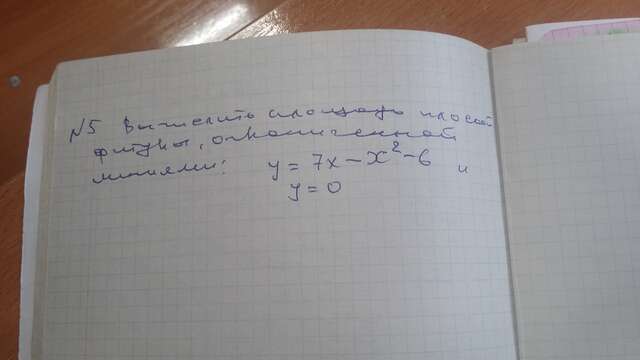 №5 Вычислить площадь плоской
фигуры, ограниченной
линиями: y = 7x − x² − 6 и
y = 0